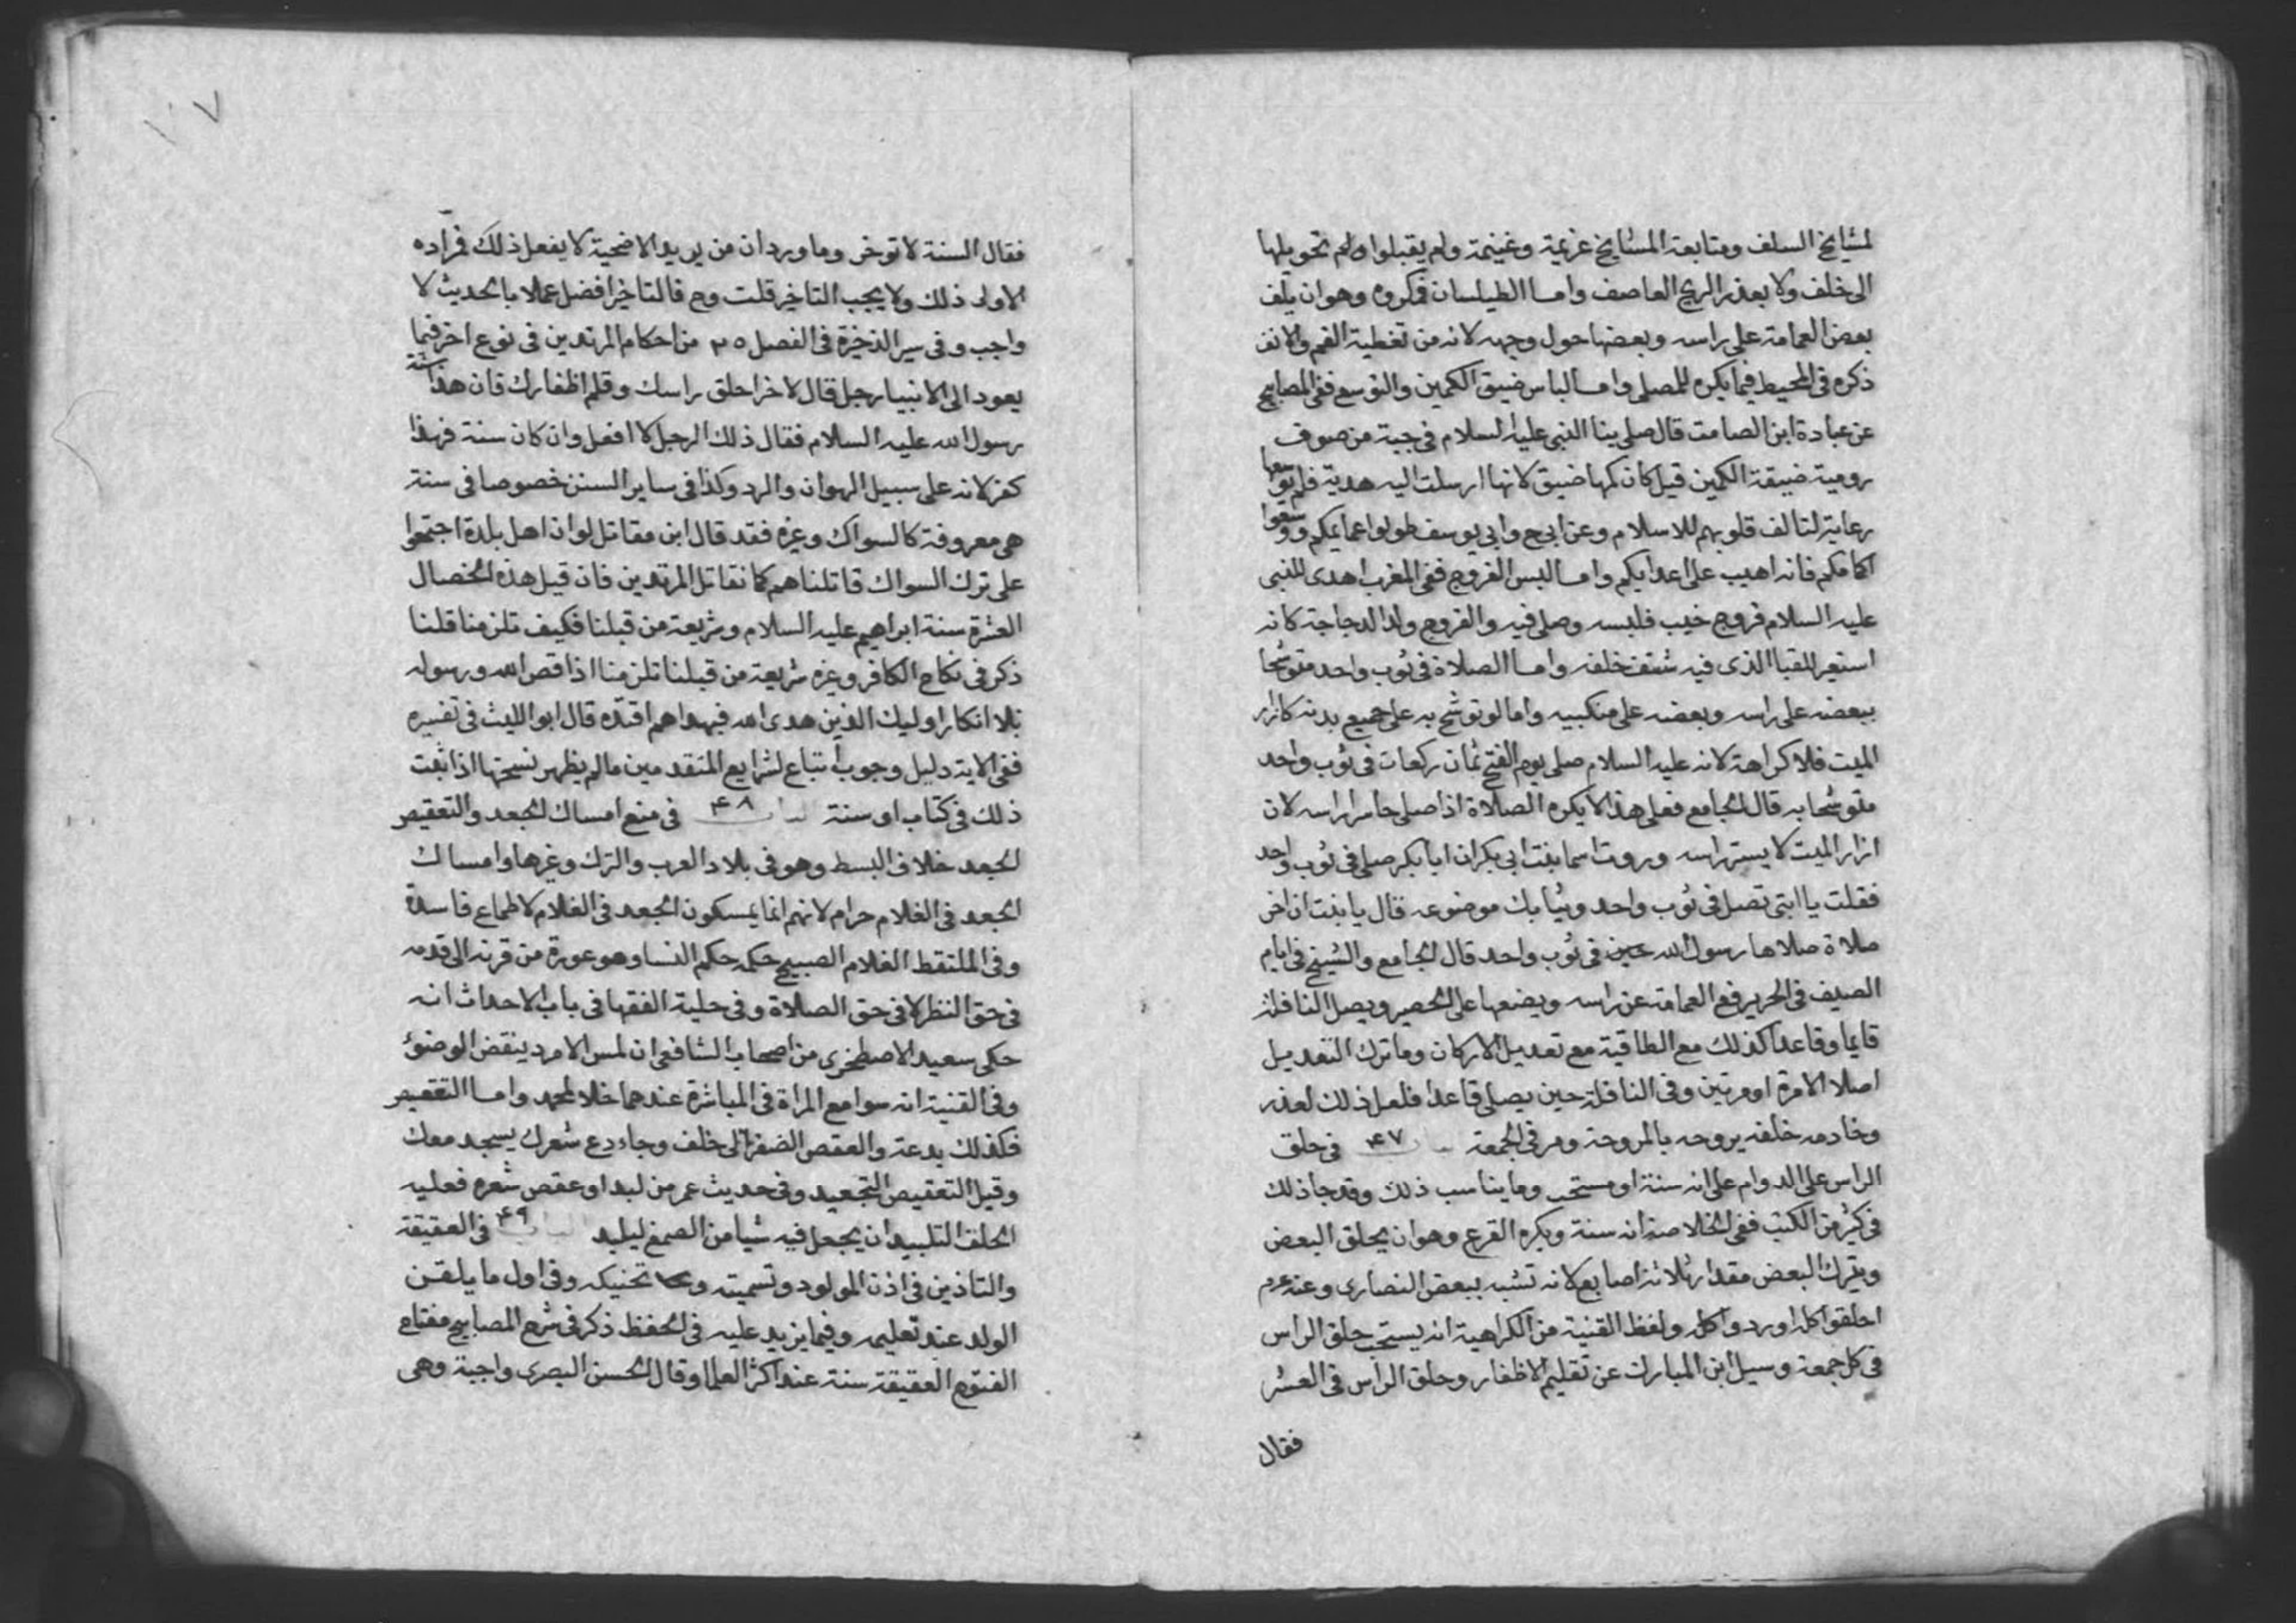 لمشايخ السلف ومتابعة المشايخ عزيمة وغنيمة ولم يقبلوا ولم تحويلها
الى خلف ولا بعذر الريح العاصف واما الطيلسان فمكروه وهو ان يلف
بعض العمامة على راسه وبعضها حول وجهه لانه من تغطية الفم والانف
ذكره فى المحيط فيما يكره للمصلى واما لباس ضيق الكمين والتوسع ففى المصابيح
عن عبادة ابن الصامت قال صلى بنا النبى عليه السلام فى جبة من صوف
رومية ضيقة الكمين قيل كان كمها ضيق لانها ارسلت اليه هدية فلم يوسعها
رعاية لتالف قلوبهم للاسلام وعن ابى ح وابى يوسف طولوا عمايمكم ووسعوا
اكمامكم فانه اهيب على اعدايكم واما لبس الفروج ففى المغرب اهدى للنبى
عليه السلام فروج فلبسه وصلى فيه والفروج ولد الدجاجة كانه
استعير للقبا الذى فيه شق خلفه واما الصلاة فى ثوب واحد متوشحا
ببعضه على راسه وبعضه على منكبيه واما لو توشح به على جميع بدنه كازار
الميت فلا كراهة لانه عليه السلام صلى يوم الفتح ثمان ركعات فى ثوب واحد
متوشحا به قال الجامع فعلى هذا لا يكره الصلاة اذا صلى حاسرا راسه لان
ازار الميت لا يستر راسه وروت اسما بنت ابى بكر ان ابا بكر صلى فى ثوب واحد
فقلت يا ابتى تصل فى ثوب واحد وثيابك موضوعه قال يا بنت ان اخر
صلاة صلاها رسول الله حين فى ثوب واحد قال الجامع والشيخ فى ايام
الصيف فى الحر يرفع العمامة عن راسه ويضعها على الحصير ويصل النافلة
قايما وقاعدا كذلك مع الطاقية مع تعديل الاركان وما ترك التعديل
اصلا الا مرة او مرتين وفى النافلة حين يصلى قاعدا فلعل ذلك لعذر
وخادمه خلفه يروحه بالمروحة ومر فى الجمعة باب ٤٧ فى حلق
الراس على الدوام على انه سنة او مستحب وما يناسب ذلك وقد جا ذلك
فى كثير من الكتب ففى الخلاصة انه سنة ويكره القزع وهو ان يحلق البعض
ويترك البعض مقدار ثلاثة اصابع لانه تشبه ببعض النصارى وعنه عم
احلقوا كله او ردوا كله ولفظ القنية من الكراهية انه يستحب حلق الراس
فى كل جمعة وسيل ابن المبارك عن تقليم الاظفار وحلق الراس فى العشر
فقال
فقال السنة لا توخر وما ورد ان من يريد الاضحية لا يفعل ذلك فمراده
الاولى ذلك ولا يجب التاخير قلت وح فالتاخير افضل عملا بالحديث لا
واجب وفى سير الذخيرة فى الفصل ٣٥ من احكام المرتدين فى نوع اخر فيما
يعود الى الانبيا رجل قال لاخر احلق راسك وقلم اظفارك فان هذا سنة
رسول الله عليه السلام فقال ذلك الرجل لا افعل وان كان سنة فهذا
كفر لانه على سبيل الهوان والرد وكذا فى ساير السنن خصوصا فى سنة
هى معروفة كالسواك وغيره فقد قال ابن مقاتل لو ان اهل بلدة اجتمعوا
على ترك السواك قاتلناهم كما نقاتل المرتدين فان قيل هذه الخصال
العشرة سنة ابراهيم عليه السلام وشريعة من قبلنا فكيف تلزمنا قلنا
ذكر فى نكاح الكافر وغيره شريعة من قبلنا تلزمنا اذا قص الله ورسوله
بلا انكار اوليك الذين هدى الله فبهداهم اقتده قال ابو الليث فى تفسيره
ففى الاية دليل وجوب اتباع لشرايع المتقدمين ما لم يظهر نسخها اذا ثبت
ذلك فى كتاب او سنة الباب ٤٨ فى منع امساك الجعد والتعقيص
الجعد خلاف البسط وهو فى بلاد العرب والترك وغيرها وامساك
الجعد فى الغلام حرام لانهم انما يمسكون الجعد فى الغلام لاطماع فاسدة
وفى الملتقط الغلام الصبيح حكمه حكم النسا وهو عورة من قرنه الى قدمه
فى حق النظر لا فى حق الصلاة وفى حلية الفقها فى باب الاحداث انه
حكى سعيد الاصطخرى من اصحاب الشافعى ان لمس الامرد ينقض الوضوء
وفى القنية انه سوا مع المراة فى المباشرة عندهما خلافا لمحمد واما التعقيص
فكذلك بدعة والعقص الضفر الى خلف وجاء دع شعرك يسجد معك
وقيل التعقيص التجعيد وفى حديث عمر من لبد او عقص شعره فعليه
الحلق التلبيد ان يجعل فيه شيا من الصمغ ليلبد الباب ٤٩ فى العقيقة
والتاذين فى اذن المولود وتسميته وتحنيكه وفى اول ما يلقن
الولد عند تعليمه وفيما يزيد عليه فى الحفظ ذكر فى شرح المصابيح مفتاح
الفتوح العقيقة سنة عند اكثر العلما وقال الحسن البصرى واجبة وهى